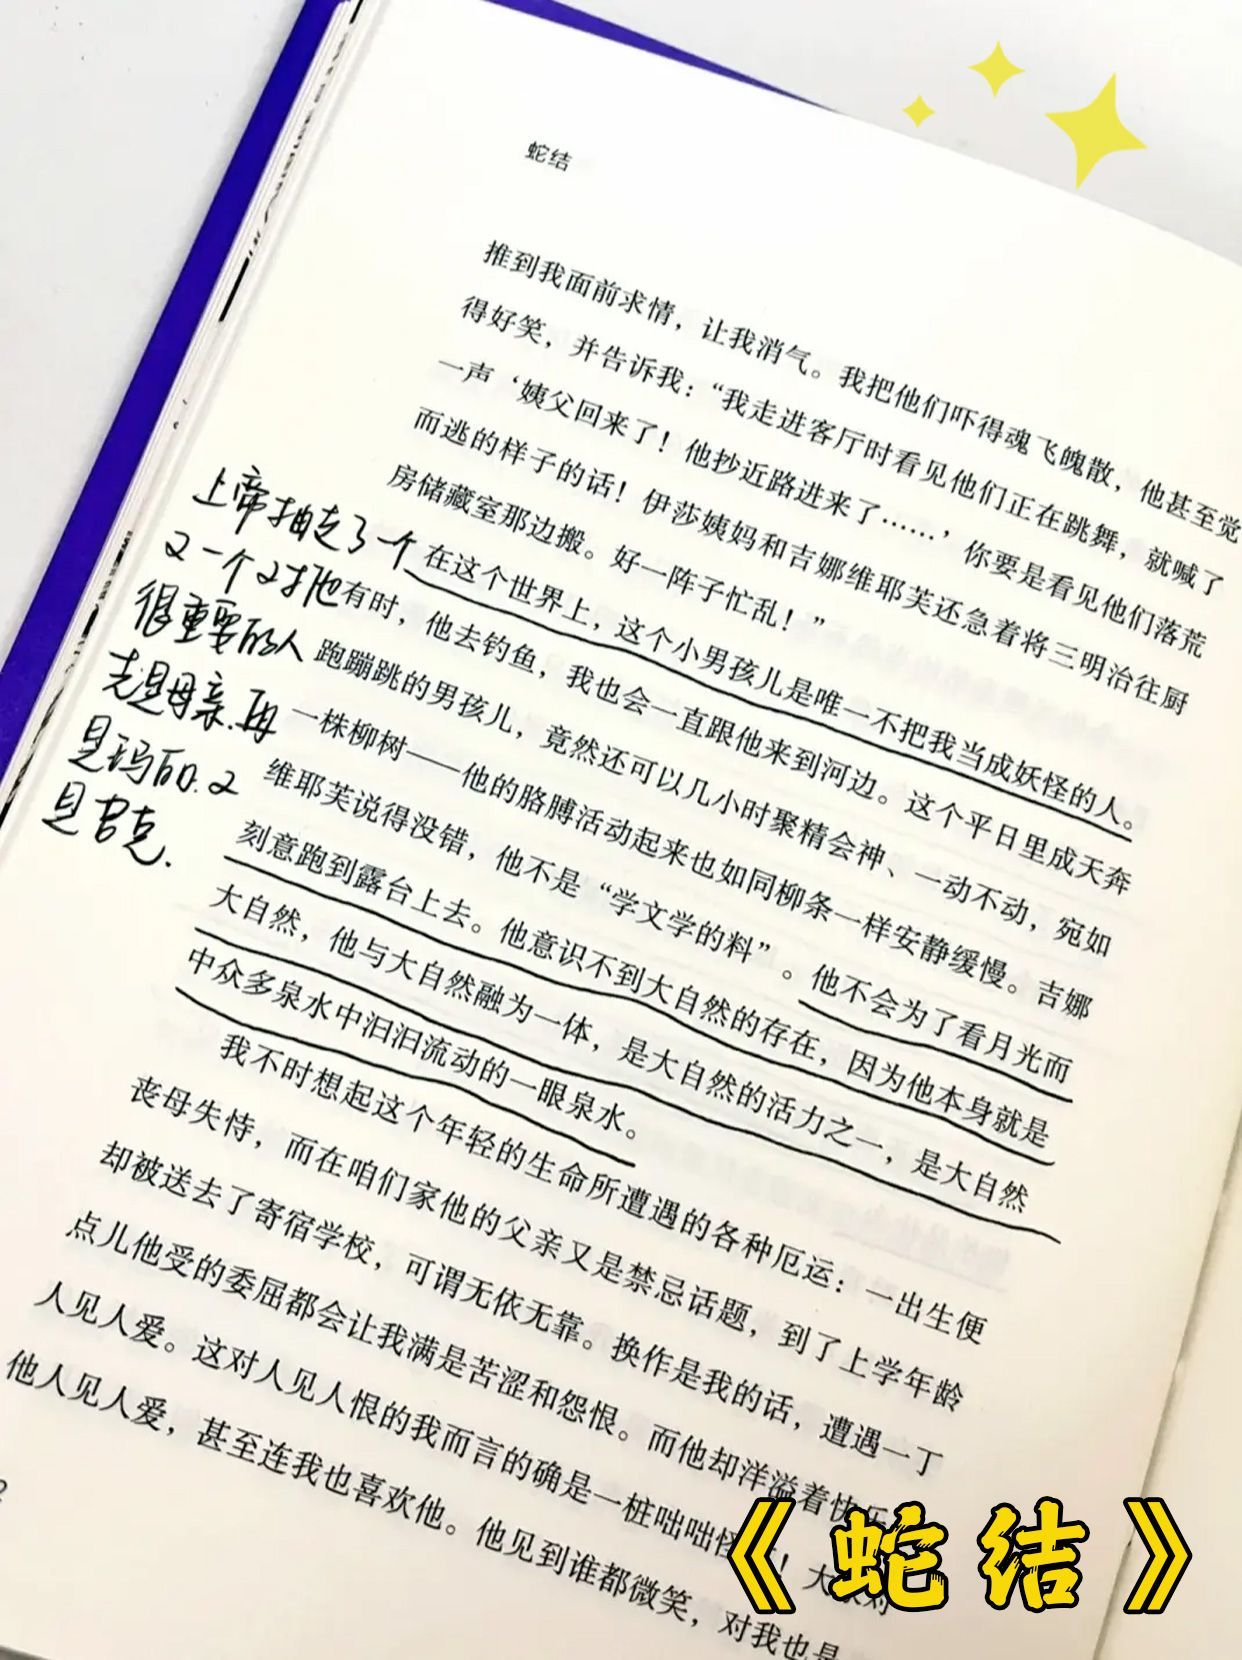 蛇结
推到我面前求情，让我消气。我把他们吓得魂飞魄散，他甚至觉
得好笑，并告诉我：“我走进客厅时看见他们正在跳舞，就喊了
一声‘姨父回来了！他抄近路进来了……’，你要是看见他们落荒
而逃的样子的话！伊莎姨妈和吉娜维耶芙还急着将三明治往厨
房储藏室那边搬。好一阵子忙乱！”
在这个世界上，这个小男孩儿是唯一不把我当成妖怪的人。
有时，他去钓鱼，我也会一直跟他来到河边。这个平日里成天奔
跑蹦跳的男孩儿，竟然还可以几小时聚精会神、一动不动，宛如
一株柳树——他的胳膊活动起来也如同柳条一样安静缓慢。吉娜
维耶芙说得没错，他不是“学文学的料”。他不会为了看月光而
刻意跑到露台上去。他意识不到大自然的存在，因为他本身就是
大自然，他与大自然融为一体，是大自然的活力之一，是大自然
中众多泉水中汩汩流动的一眼泉水。
我不时想起这个年轻的生命所遭遇的各种厄运：一出生便
丧母失恃，而在咱们家他的父亲又是禁忌话题，到了上学年龄
却被送去了寄宿学校，可谓无依无靠。换作是我的话，遭遇一丁
点儿他受的委屈都会让我满是苦涩和怨恨。而他却洋溢着快乐
人见人爱。这对人见人恨的我而言的确是一桩咄咄怪！大
他人见人爱，甚至连我也喜欢他。他见到谁都微笑，对我也是
上帝抽走了一个
又一个对他
很重要的人
先是母亲.再
是玛丽.又
是吕克.
《蛇结》